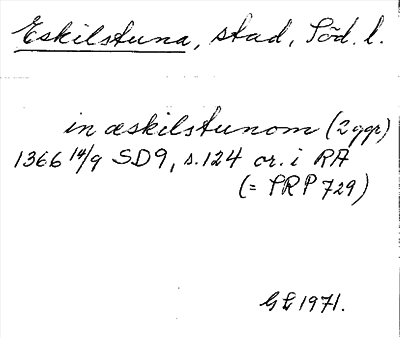 Eskilstuna, stad, Söd. l.
in æskilstunom (2 ggr)
1366 14/9 SD9, s. 124 or. i RA
(= SRP 729)
GL 1971.